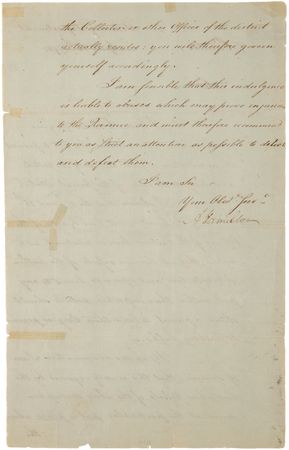 the Collector or other Officer of the district
actually resides: you will therefore govern
yourself accordingly.
I am sensible that this indulgence
is liable to abuses which may prove injurious
to the Revenue and must therefore recommend
to you as strict an attention as possible to detect
and defeat them.
I am Sir
Your Obedt Servt
A Hamilton